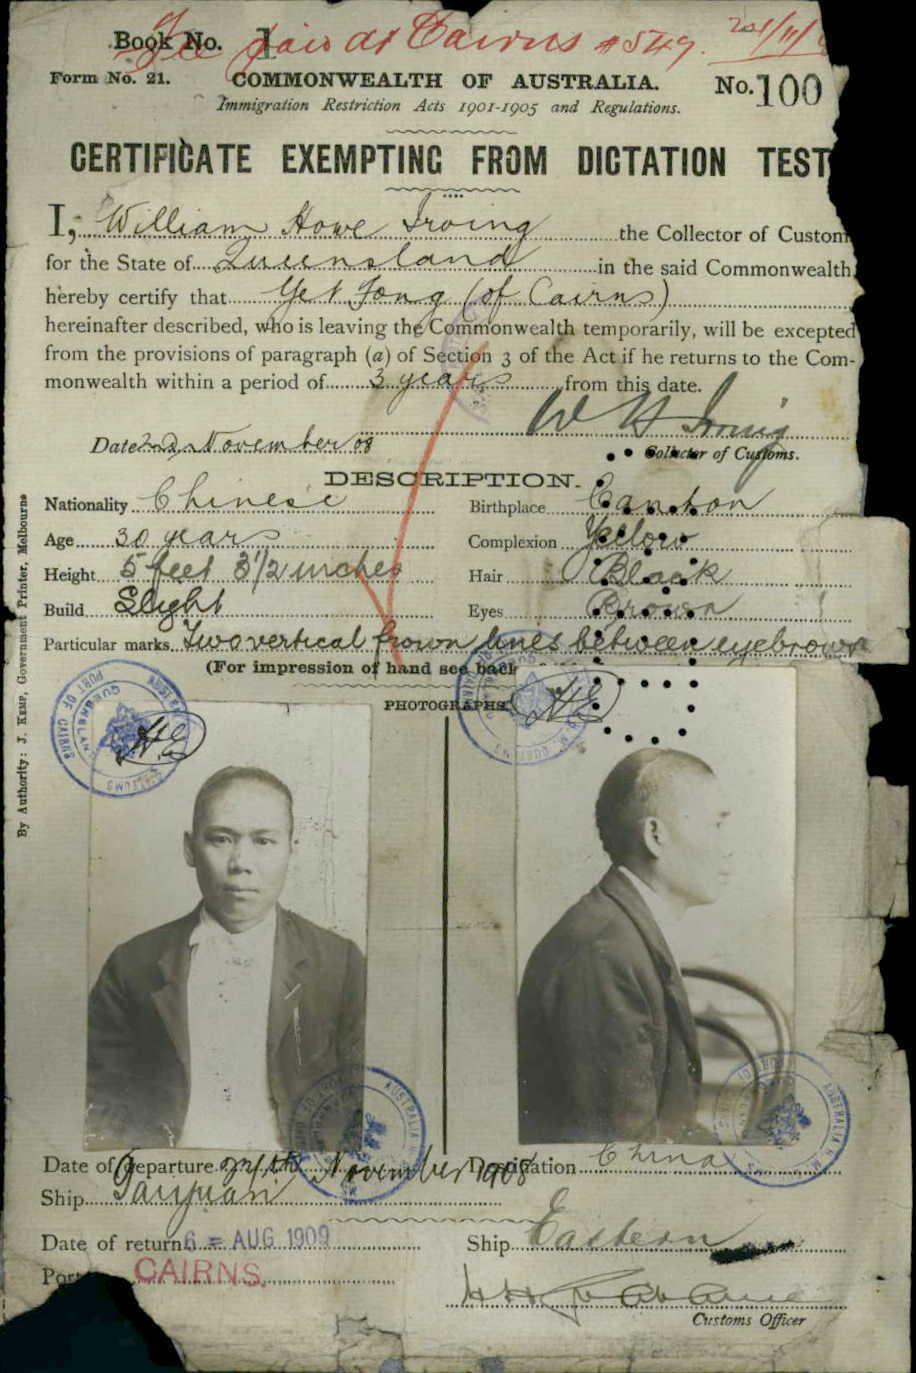 Fee paid at Cairns #549.
Book No. 1
Form No. 21.
COMMONWEALTH OF AUSTRALIA.
No. 100
Immigration Restriction Acts 1901-1905 and Regulations.
CERTIFICATE EXEMPTING FROM DICTATION TEST
I, William Howe Irving the Collector of Custom
for the State of Queensland in the said Commonwealth
hereby certify that Yet Fong (of Cairns)
hereinafter described, who is leaving the Commonwealth temporarily, will be excepted
from the provisions of paragraph (a) of Section 3 of the Act if he returns to the Com-
monwealth within a period of 3 years from this date.
W H Irving
Date 2nd November 08
Collector of Customs.
DESCRIPTION.
Nationality Chinese Birthplace Canton
Age 30 years Complexion Yellow
Height 5 feet 3 1/2 inches Hair Black
Build Slight Eyes Brown
Particular marks Two vertical frown lines between eyebrows
(For impression of hand see back
PHOTOGRAPHS.
By Authority: J. KEMP, Government Printer, Melbourne
PORT OF CAIRNS
QUEENSLAND
CUSTOMS
AUSTRALIA
AUSTRALIA
Date of departure November 1908 Destination China
Ship Taiyuan
Date of return 6 = AUG 1909 Ship Eastern
Port CAIRNS.
Customs Officer